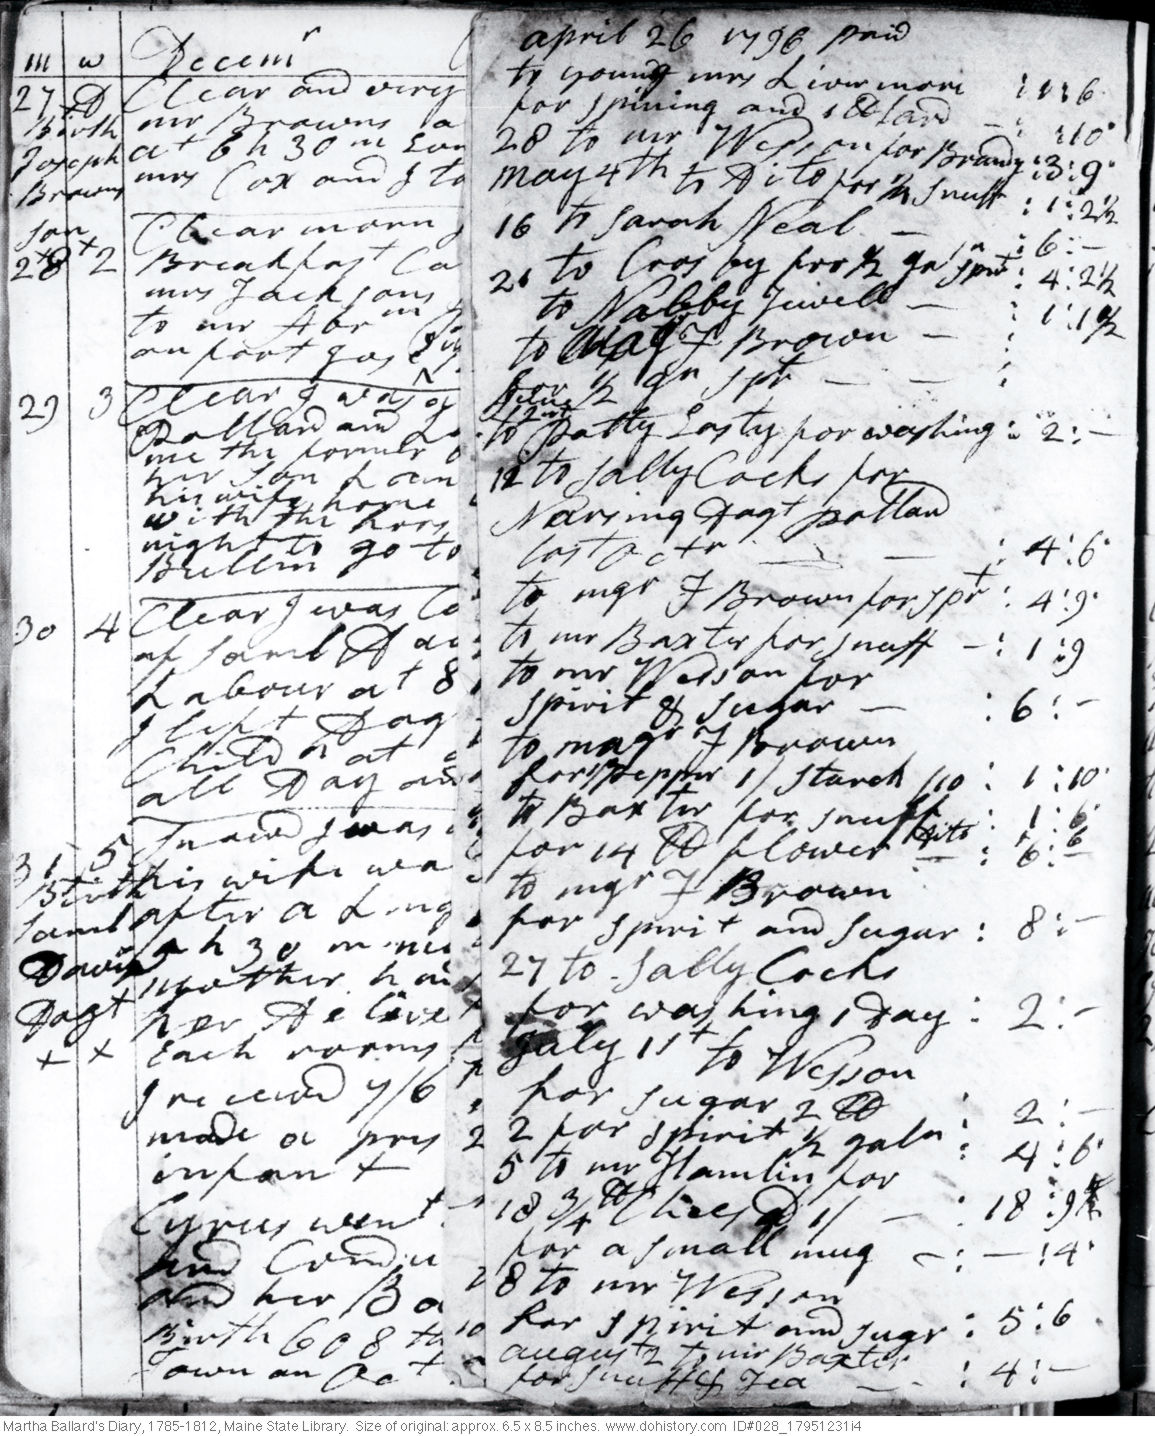 m w Decemr
27 D Clear and very
Birth mr Browns a
Joseph at 6 h 30 m Eon
Browns mrs Cox and I to
son
Clear morn
28 2 Breakfast Ca
mrs Jacksons
to mr Abrm
an fort gus
29 3 Clear I was
Pollard and Lo
me the former
her son Loan
his wife home
with the hors
night to go to
Bullin
30 4 Clear I was Ca
of Saml Dav
Labour at 8
I left Dag
Child n at
all Day and
31 5 Snowd I was
Birth his wife wa
Saml after a Ling
Davis h 30 m
Dagt mother h
her De live
+ x Each rooms
I receivd 7/6
made a pres
infant
Cyrus went
and Condu
and her Ba
Birth 608 th
Town an Oct
april 26 1796 paid
to young mrs Livermore
for spining and 1 lb lard : 1 : 6
28 to mr Wesson for Brandy : 3 : 9
may 4th to Dito for ¼ snuff : 1 : 2½
16 to Sarah Neal – : 6 : –
21 to Cros by for ½ gn spt : 4 : 2½
to Nabby Jewell – : 1 : 1½
to Magr J Brown – :
for ½ gn spt – – :
June
to patty Easty for washing : 2 : –
12 to Sally Cocks for
Nursing Dagt pollard
last octr – : 4 : 6
to mgr J Brown for spt : 4 : 9
to mr Baxter for snuff – : 1 : 9
to mr Wesson for
spirit & sugar – : 6 : –
to magr J Brown
for pepper 1/ starch /10 : 1 : 10
to Baxter for snuff : 1 : 6
for 14 lb flower Dito – : 6 : 6
to mgr J Brown
for spirit and sugar : 8 : –
27 to Sally Cocks
for washing 1 Day : 2 : –
July 1st to Wesson
for sugar 2 lb : 2 : –
2 2 for spirit ½ galn : 4 : 6
5 to mr Hamlin for
18 ¾ lb Chees d 1/ – : 18 : 9
for a small mug – : – : 4
8 to mr Wesson
for spirit and sugr : 5 : 6
august 2 to mr Baxter
for snuff & Tea – – : 4 : –
Martha Ballard's Diary, 1785-1812, Maine State Library. Size of original: approx. 6.5 x 8.5 inches. www.dohistory.com ID#028_17951231i4